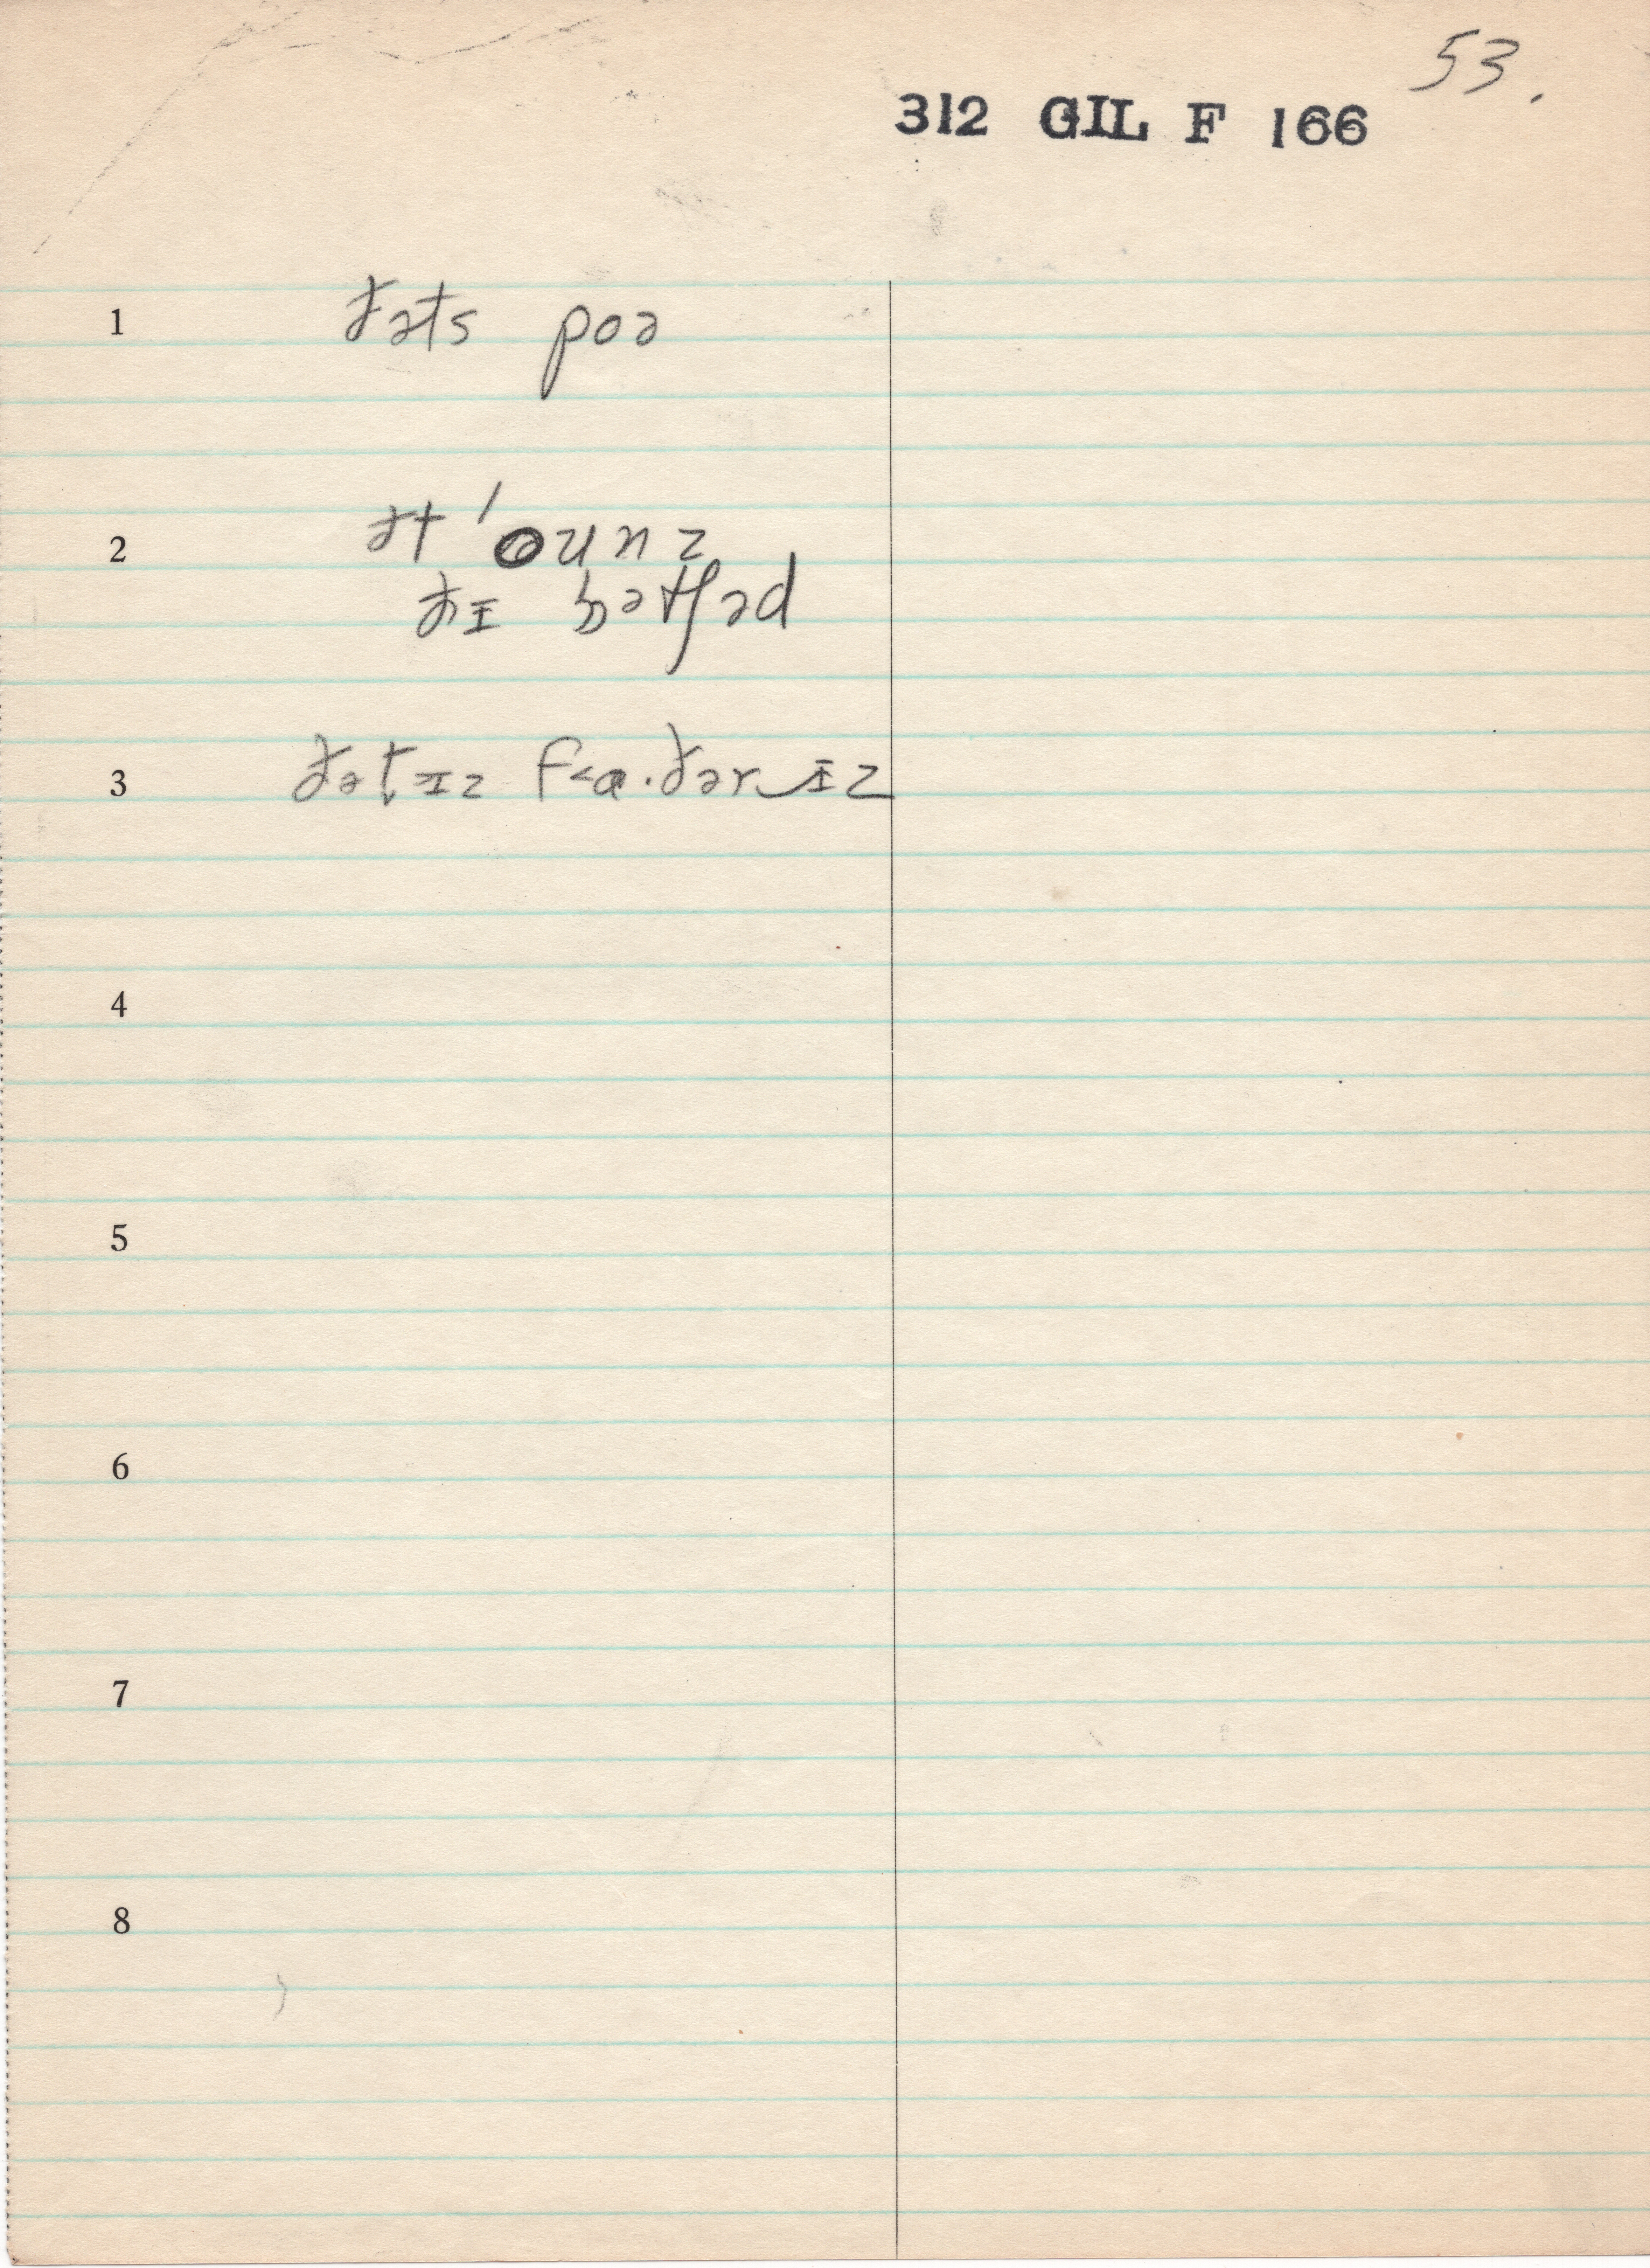 53.
312 GIL F 166
1 ðəts poə
2 ət ˈounz
ðɪ bətʃəd
3 ðət̬ɪz f<ɑ·ðər‿ɪz
4
5
6
7
8